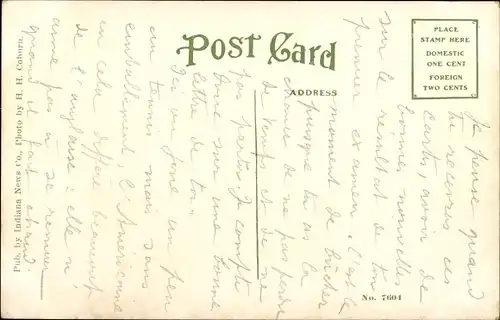 Post Card
ADDRESS
PLACE
STAMP HERE
DOMESTIC
ONE CENT
FOREIGN
TWO CENTS
Pub. by Indiana News Co., Photo by H. H. Coburn.
No. 7604
Je pense quand
tu recevras ces
cartes, avoir de
bonnes nouvelles
sur le resultat de ton
premier examen. C'est le
moment de bûcher
puisque tu as la
chance de ne pas perdre
de temps et de ne
pas partir. Je compte
donc sur une bonne
lettre de toi.
J'ai un peu
au tennis mais sans
emballement, l'Américaine
en cela diffère beaucoup
de l'anglaise: elle n'
aime pas à se remuer
quand il fait chaud.